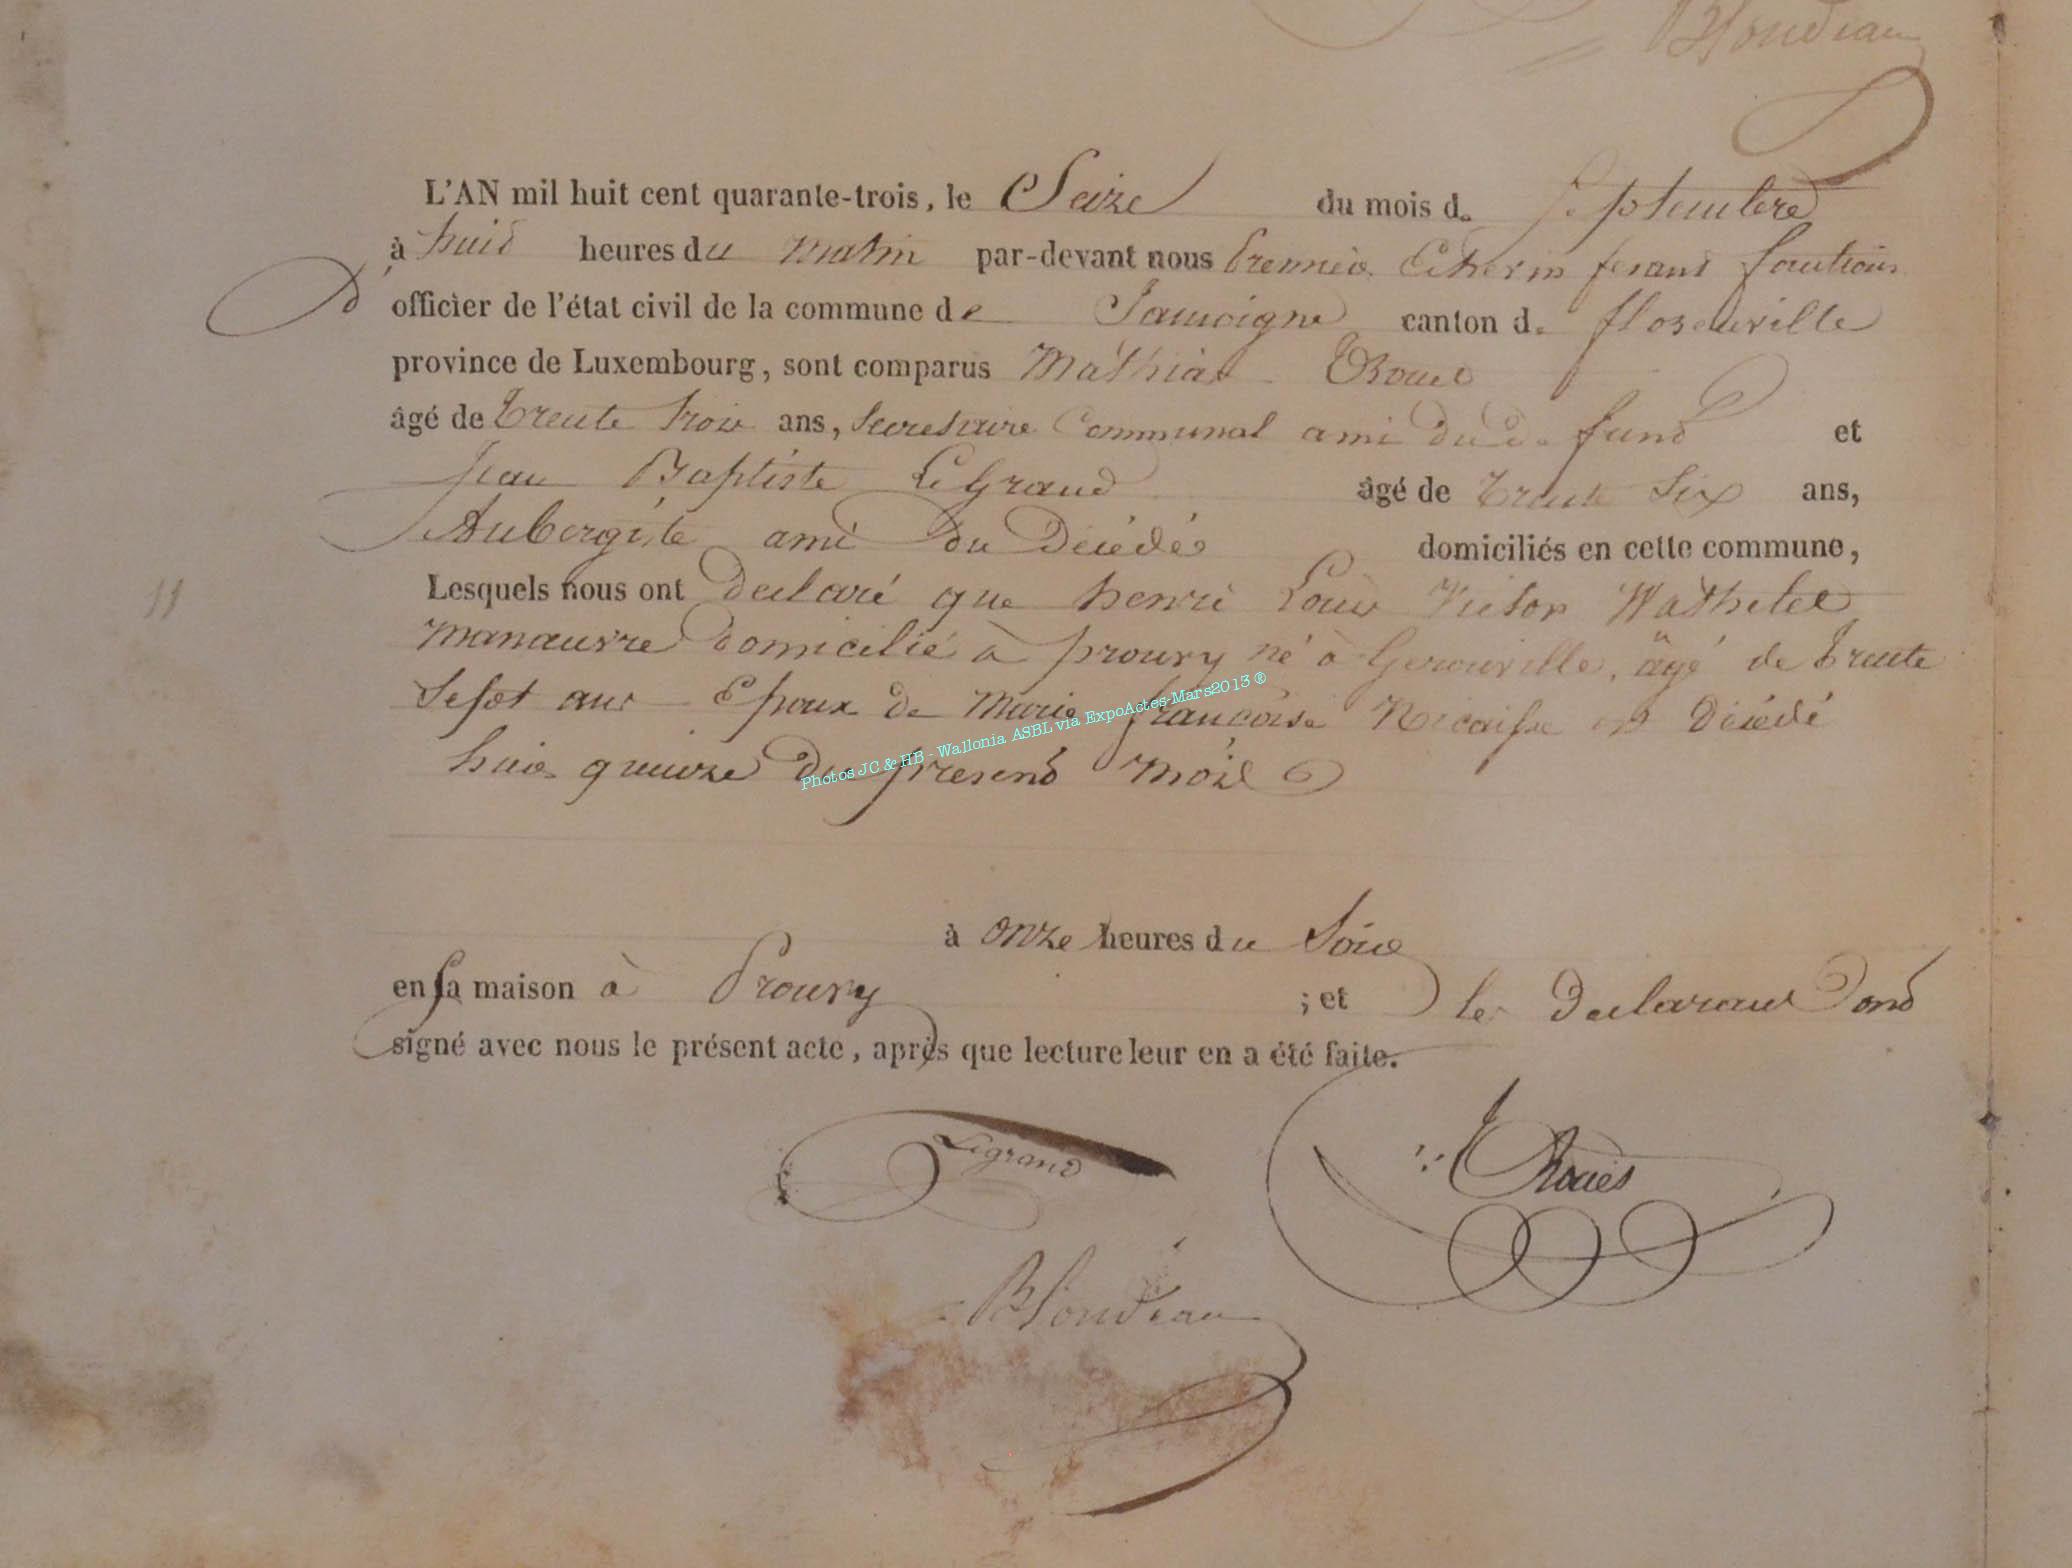 Blondeau
L'AN mil huit cent quarante-trois, le Seize du mois de Septembre
à huit heures du matin par-devant nous Premier Echevin fesant fonctions
d' officier de l'état civil de la commune de Jamoigne canton de florenville
province de Luxembourg, sont comparus Mathias
âgé de trente trois ans, Secretaire Communal ami du defunt et
Jean Baptiste LeGrand âgé de trente Six ans,
Aubergiste ami du Décédé domiciliés en cette commune,
Lesquels nous ont declaré que henri Louis Victor Wathelet
11
manœuvre domicilié à prouvy né à Gerouville, âgé de trente
Sept ans Epoux de Marie françoise Nicaisse est Décédé
hier quinze du present mois
Photos JC & HB - Wallonia ASBL via ExpoActes-Mars2013 ®
à onze heures du Soir
en sa maison à Prouvy ; et les declarans ont
signé avec nous le présent acte, après que lecture leur en a été faite.
Legrand
Blondeau